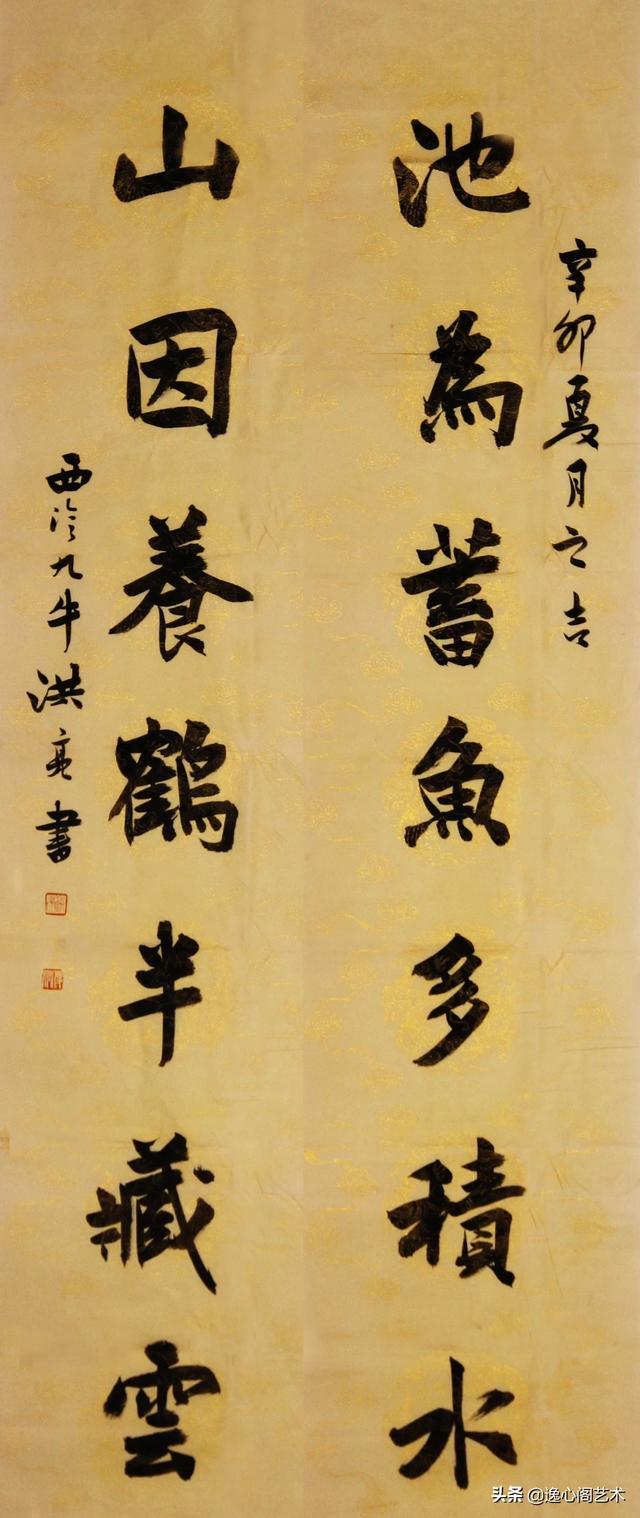 辛卯夏月之吉
池為蓄魚多積水
山因養鶴半藏雲
西泠九牛洪亮書
头条 @逸心阁艺术